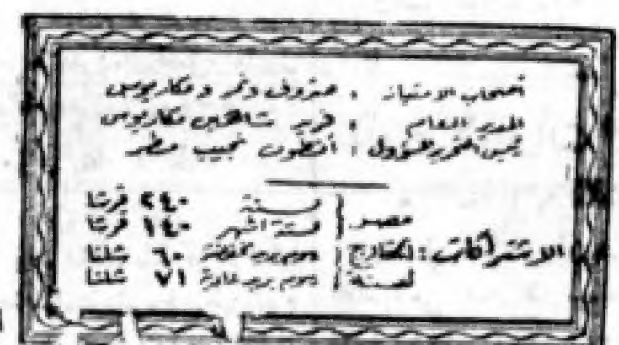 أصحاب الامتياز : صروف ونمر ومكاريوس
المدير العام : فريد شاهين مكاريوس
رئيس التحرير المسؤول : أنطون نجيب مطر
الاشتراكات :
مصر { لسنة ٢٤٠ قرشا
لستة اشهر ١٤٠ قرشا
الخارج لسنة { برسوم بريد مخفضة ٦٠ شلنا
رسوم بريد عادية ٧١ شلنا